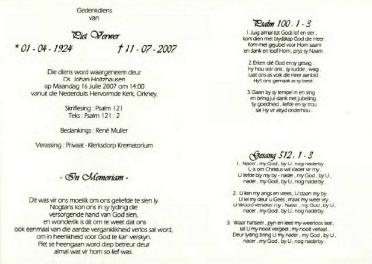 Gedenkdiens
van
Piet Verwer
* 01 - 04 - 1924 † 11 - 07 - 2007
Die diens word waargeneem deur
Ds. Johan Holtzhausen
op Maandag 16 Julie 2007 om 14:00
vanuit die Nederduits Hervormde Kerk, Orkney.
Skriflesing : Psalm 121
Teks : Psalm 121 : 2
Bedankings : René Muller
Verassing : Privaat - Klerksdorp Krematorium
- In Memoriam -
Dit was vir ons moeilik om ons geliefde te sien ly.
Nogtans kon ons in sy lyding die
versorgende hand van God sien,
en wonderlik is dit om te weet dat ons
ook eenmaal van die aardse verganklikheid verlos sal word,
om in heerlikheid voor God te kan verskyn.
Piet se heengaan word diep betreur deur
almal wat vir hom so lief was.
Psalm 100 : 1 - 3
1. Juig almal tot Gods lof en eer,
kom dien met blydskap God die Heer.
Kom met gejubel voor Hom saam
en dank en loof Hom, prys sy Naam.
2. Erken die God en sy gesag,
Hy hou oor ons, sy kudde, wag.
Laat ons as volk die Heer aanbid
Hy't ons gemaak as sy besit.
3. Gaan by sy tempel in en sing
en bring jul dank met jubeling.
Sy goedheid, liefde en sy trou
sal Hy vir altyd onderhou.
Gesang 512 : 1 - 3
1. Nader, my God, by U, nog naderby
U is om Christus wil
U liefde bly my by - nader, my God, by U,
nader, my God, by U, nog naderby.
2. U ken my angs en vrees, U staan my by
U lei my deur U Gees,
nader, my God, by U,
nader, my God, by U, nog naderby.
3. Waar hartseer, pyn en leed my weerloos laat,
sal U my nooit vergeet, my nooit verlaat.
Deur lyding bring U my nader, my God, by U,
nader, my God, by U, nog naderby.